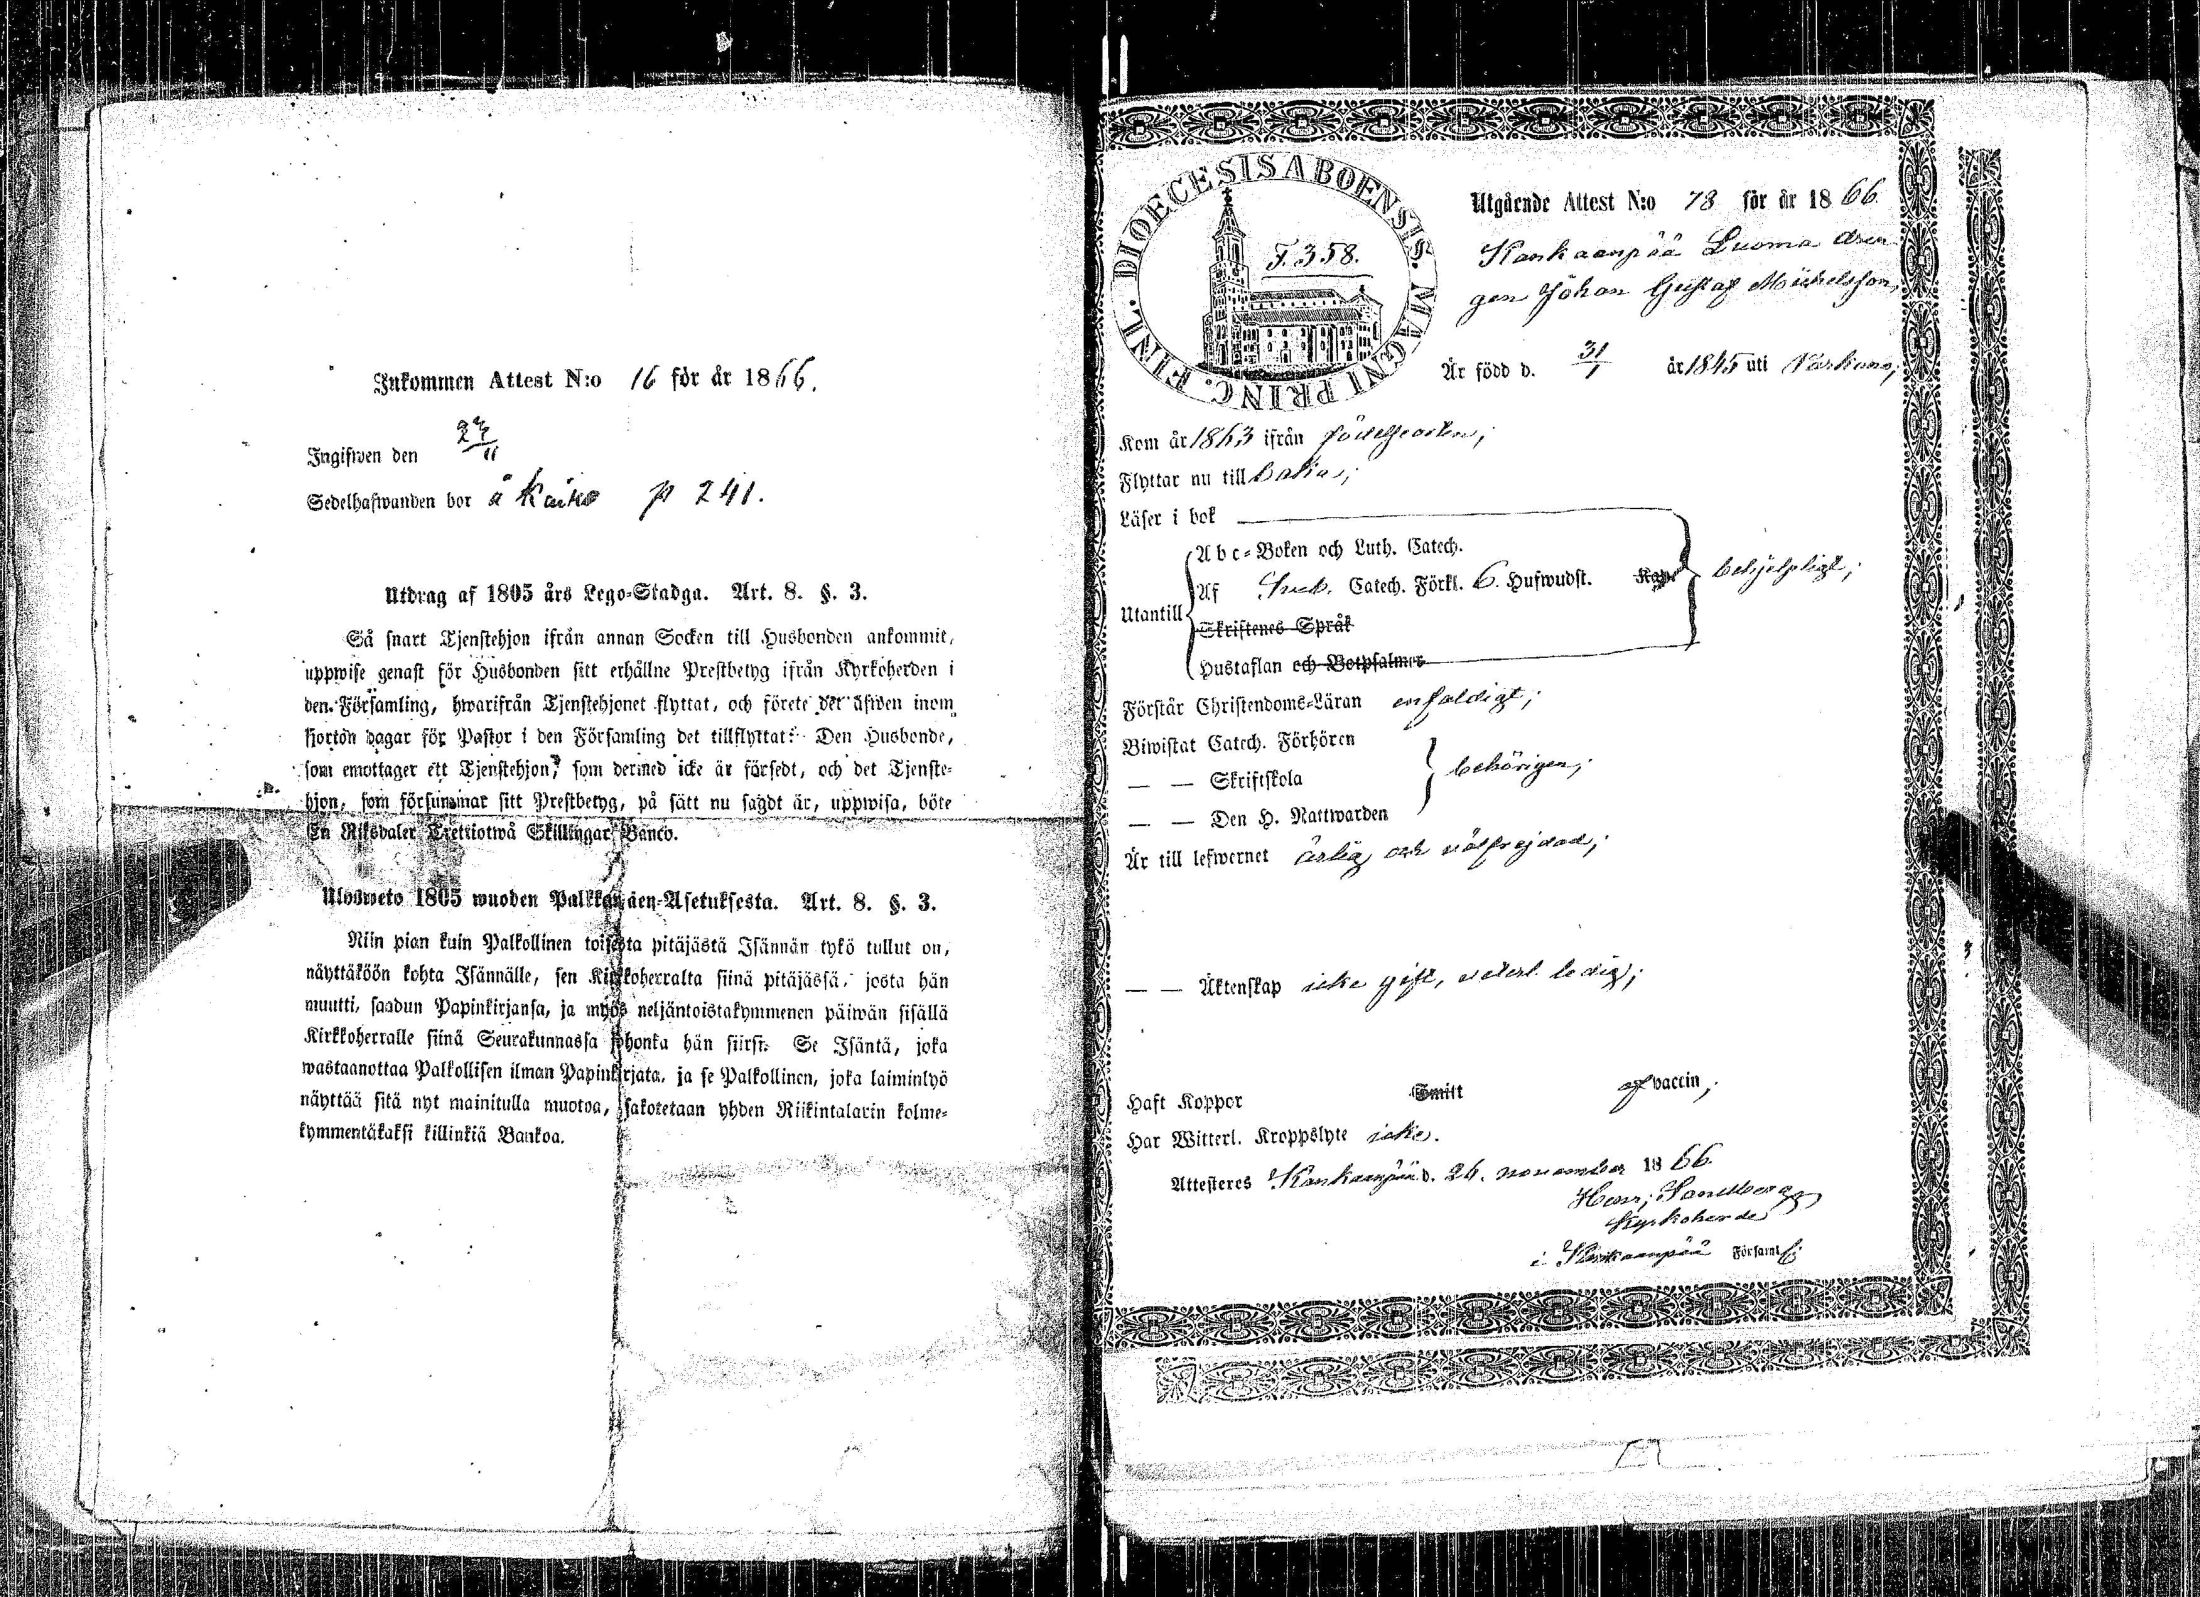 Inkommen Attest N:o 16 för år 1866.
Ingifwen den 27/11
Sedelhafwanden bor å Kairo p 241.
Utdrag af 1805 års Lego-Stadga. Art. 8. §. 3.
Så snart Tjenstehjon ifrån annan Socken till Husbonden ankommit,
uppwise genast för Husbonden sitt erhållne Prestbetyg ifrån Kyrkoherden i
den Församling, hwarifrån Tjenstehjonet flyttat, och förete det äfwen inom
fjorton dagar för Pastor i den Församling det tillflyttat: Den Husbonde,
som emottager ett Tjenstehjon, som dermed icke är försedt, och det Tjenste-
hjon, som försummar sitt Prestbetyg, på sätt nu sagdt är, uppwisa, böte
En Riksdaler Trettiotwå Skillingar Banco.
Ulosweto 1805 wuoden Palkkawäen-Asetuksesta. Art. 8. §. 3.
Niin pian kuin Palkollinen toisesta pitäjästä Isännän tykö tullut on,
näyttäköön kohta Isännälle, sen Kirkkoherralta siinä pitäjässä, josta hän
muutti, saadun Papinkirjansa, ja myös neljäntoistakymmenen päiwän sisällä
Kirkkoherralle siinä Seurakunnassa johonka hän siirsi. Se Isäntä, joka
wastaanottaa Palkollisen ilman Papinkirjata, ja se Palkollinen, joka laiminlyö
näyttää sitä nyt mainitulla muotoa, sakotetaan yhden Riikintalarin kolme-
kymmentäkaksi killinkiä Bankoa.
DIOECESIS ABOENSIS. MAGNI PRINC. FINL.
F. 358.
Utgående Attest N:o 73 för år 1866.
Kankaanpää Luoma dren
gen Johan Gustaf Michelsson,
Är född d. 31/1 år 1845 uti
Kom år 1863 ifrån födelseorten;
Flyttar nu till
Läser i bok
Utantill
Abc-Boken och Luth. Catech.
Af Sveb. Catech. Förkl. 6. Hufwudst. Kap. behjelpligt;
Skriftenes Språk
Hustaflan och Botpsalmer
Förstår Christendoms-Läran enfaldigt;
Biwistat Catech. Förhören
— — Skriftskola behörigen;
— — Den H. Nattwarden
Är till lefwernet ärlig och välfrejdad;
— — Äktenskap icke gift, veterl. ledig;
Haft Koppor Smitt af vaccin;
Har Witterl. Kroppslyte icke.
Attesteres Kankaanpää d. 26. november 1866.
Henr; Sandberg
Kyrkoherde
i Kankaanpää Församl.